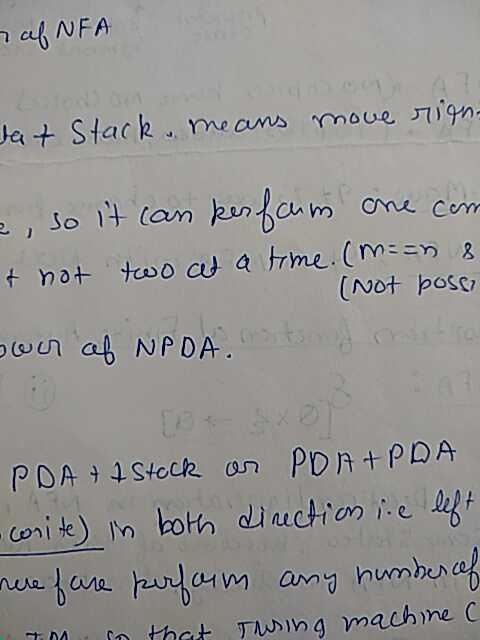 of NFA
+ Stack. means move
, so it can perform one com
not two at a time. (m==n &
(Not possi
ower of NPDA.
PDA + 1 Stack or PDA + PDA
in both direction i.e left
perform any number of
so that Turing machine C